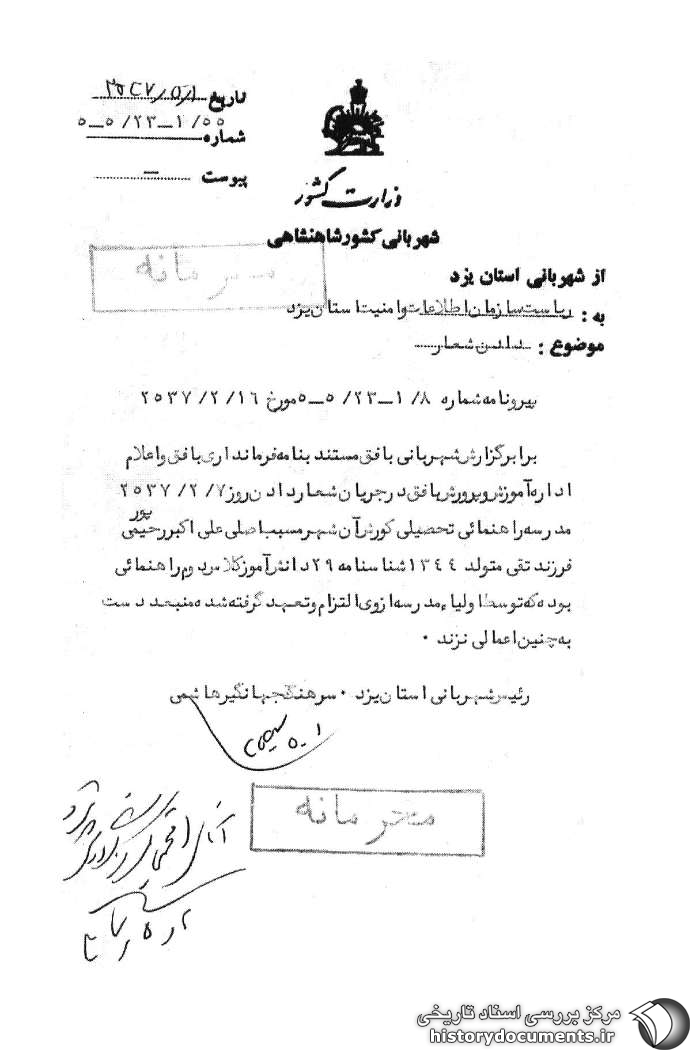 تاریخ ۲۵۳۷/۵/۱
شماره ۵۵/ ۱ــ۲۳/ ۵ــ۵
پیوست ــ
وزارت کشور
شهربانی کشور شاهنشاهی
محرمانه
از شهربانی استان یزد
به : ریاست سازمان اطلاعات و امنیت استان یزد
موضوع : دادن شعار
پیرو نامه شماره ۸/ ۱ــ۲۳/ ۵ــ۵ مورخ ۱۶/ ۲/ ۲۵۳۷
برابر گزارش شهربانی بافق مستند بنامه فرمانداری بافق و اعلام
اداره آموزش و پرورش بافق در جریان شعار دادن روز ۷/ ۲/ ۲۵۳۷
مدرسه راهنمائی تحصیلی کورش آن شهر مسبب اصلی علی اکبر رحیمی پور
فرزند تقی متولد ۱۳۴۴ شناسنامه ۲۹ دانش آموز کلاس دوم راهنمائی
بوده که توسط اولیاء مدرسه از وی التزام و تعهد گرفته شده منبعد دست
به چنین اعمالی نزند ۰
رئیس شهربانی استان یزد ۰ سرهنگ جهانگیر هاشمی
محرمانه
آقای
مرکز بررسی اسناد تاریخی
historydocuments.ir